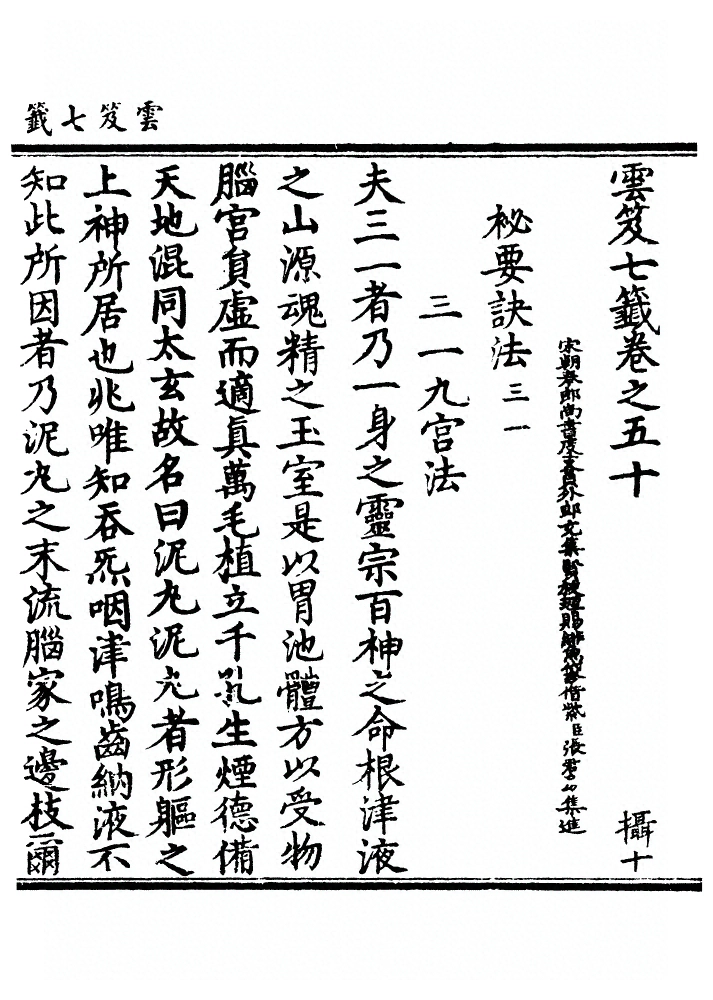 雲笈七籤
雲笈七籤卷之五十
攝十
宋朝奉郎尚書度支員外郎充集賢校理賜緋魚袋借紫臣張君房集進
祕要訣法三一
三一九宮法
夫三一者乃一身之靈宗百神之命根津液
之山源魂精之玉室是以胃池體方以受物
腦宮員虛而適真萬毛植立千孔生煙德備
天地混同太玄故名曰泥丸泥丸者形軀之
上神所居也兆唯知吞炁咽津鳴齒納液不
知此所因者乃泥丸之末流腦家之邊枝爾